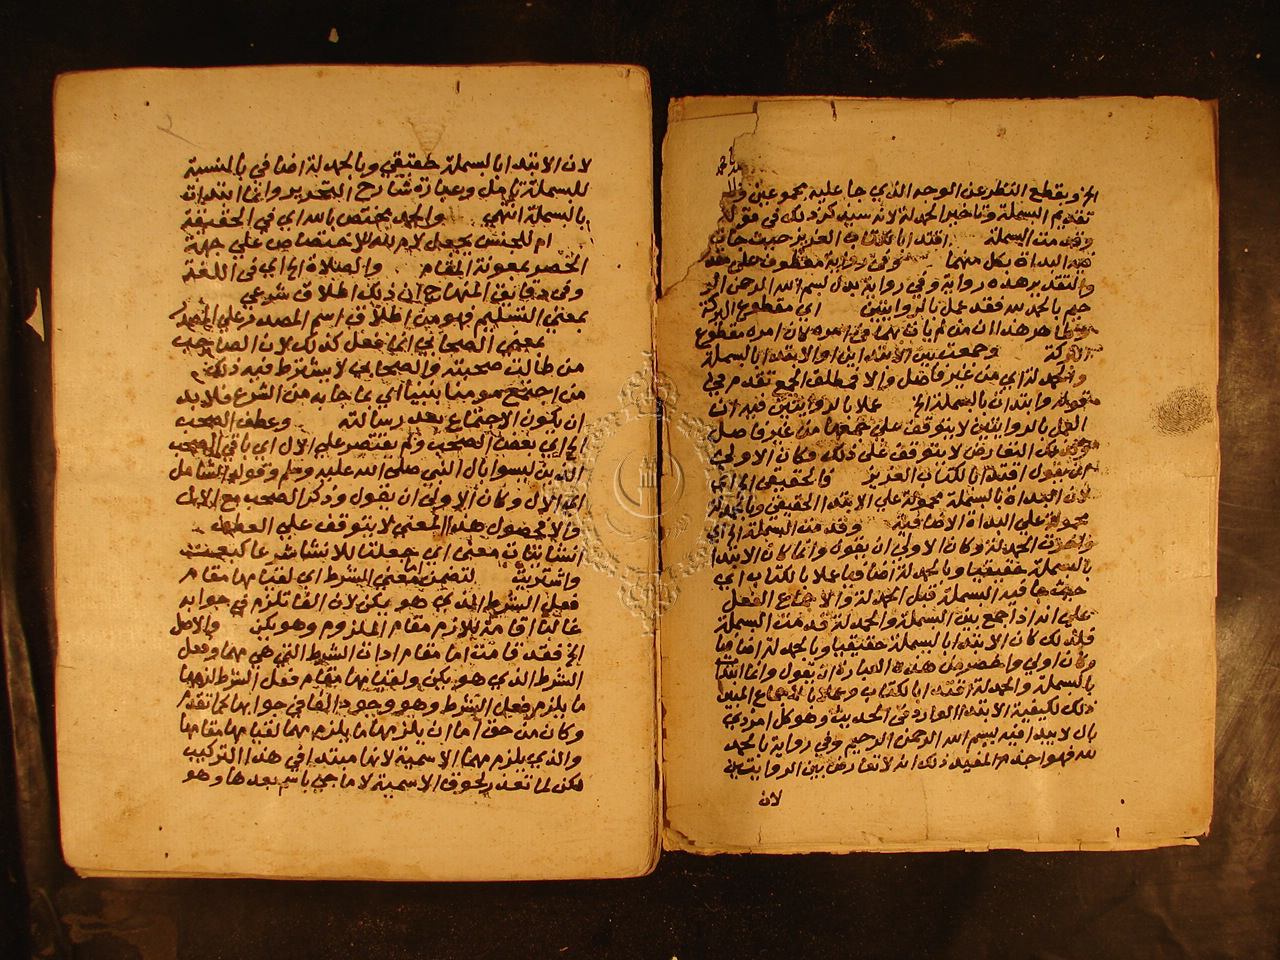 الخ وبقطع النظر عن الوجه الذي جا عليه مجموعين
تقديم البسملة وتاخير الحمدلة لانه سيذكر ذلك في قوله
وقدمت البسملة اقتدا بالكتاب العزيز حيث جات
فيه البداة بكل منهما وفي رواية مقطوف على هذه
والتقدير هذه رواية وفي رواية بدل بسم الله الرحمن الر
حيم بالحمد لله فقد عمل بالروايتين اي مقطوع البركة
وظاهر هذا ان من لم يات بهما في اموره كان امره مقطوع
البركة وجمعت بين الابتداين اي الابتدا بالبسملة
والحمدلة اي من غير فاصل والا فمطلق الجمع تقدم في
قوله وابتدات بالبسملة الخ عملا بالروايتين فيه ان
العمل بالروايتين لا يتوقف على جمعهما من غير فاصل
التعارض لا يتوقف على ذلك فكان الاولى
ان يقول اقتدا بالكتاب العزيز فالحقيقي الخ اي
لان البداة بالبسملة محمولة على الابتدا الحقيقي وبالحمدلة
محمولة على البداة الاضافية وقدمت البسملة الخ اي
واخرت الحمدلة وكان الاولى ان يقول وانما كان الابتدا
بالبسملة حقيقيا وبالحمدلة اضافيا عملا بالكتاب اي
حيث جا فيه البسملة قبل الحمدلة والاجماع الفعل
على انه اذا جمع بين البسملة والحمدلة قدمت البسملة
فلذلك كان الابتدا بالبسملة حقيقيا وبالحمدلة اضافيا
وكان اولى واخصر من هذه العبارة ان يقول وانما ابتدا
بالبسملة والحمدلة اقتدا بالكتاب وعملا بالاجماع المبين
ذلك لكيفية الابتدا الوارد في الحديث وهو كل امر ذي
بال لا يبدا فيه ببسم الله الرحمن الرحيم وفي رواية بالحمد
لله فهو اجذم المفيد ذلك انه لا تعارض بين الروايتين
لان
لان الابتدا بالبسملة حقيقي وبالحمدلة اضافي بالنسبة
للبسملة تامل وعبارة شارح التحرير وانما ابتدات
بالبسملة انتهى والحمد مختص بالله اي في الحقيقة
ام للجنس بجعل لام لله للاختصاص على جهة
الحصر بمعونة المقام والصلاة الخ اي في اللغة
وفي دقايق المنهاج ان ذلك اطلاق شرعي
بمعنى التسليم فهو من اطلاق اسم المصدر على المصدر
بمعنى الصحابي انما فعل كذلك لان الصاحب
من طالت صحبته والصحابي لا يشترط فيه ذلك
من اجتمع مومنا بنبينا اي بما جا به من الشرع فلا بد
ان يكون الاجتماع بعد رسالته وعطف الصحب
الخ اي بعض الصحب ولم يقتصر على الال اي باقي الصحب
الذين ليسوا بال النبي صلى الله عليه وسلم وقوله الشامل
اي الال وكان الاولى ان يقول وذكر الصحب مع الال
والا فحصول هذا المعنى لا يتوقف على العطف
انشاييتان معنى اي جعلتا للانشا شرعا كبعت
واشتريت لتضمن معنى الشرط اي لقيامها مقام
فعل الشرط الذي هو يكن لان الفا تلزم في جوابه
غالبا اقامة للازم مقام الملزوم وهو يكن والاصل
الخ فقد قامت اما مقام ادات الشرط التي هي مهما وفعل
الشرط الذي هو يكن ولقيامها مقام فعل الشرط لزمها
ما يلزم فعل الشرط وهو وجود الفا في جوابها كما تقدم
وكان من حق اما ان يلزمها ما يلزم مهما لقيامها مقامها
والذي يلزم مهما الاسمية لانها مبتدا في هذا التركيب
لكن لما تعذر لحوق الاسمية لاما جي باسم بعدها وهو